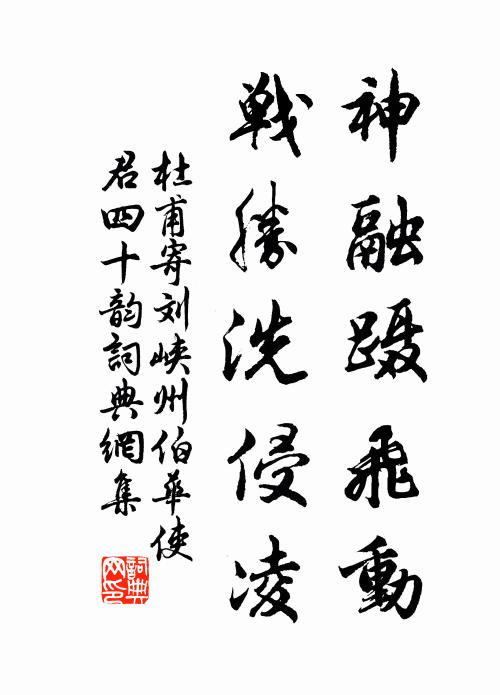 神融蹑飛動
戦勝洗侵凌
杜甫寄刘峡州伯華使
君四十韵詞典網集
詞典
网印